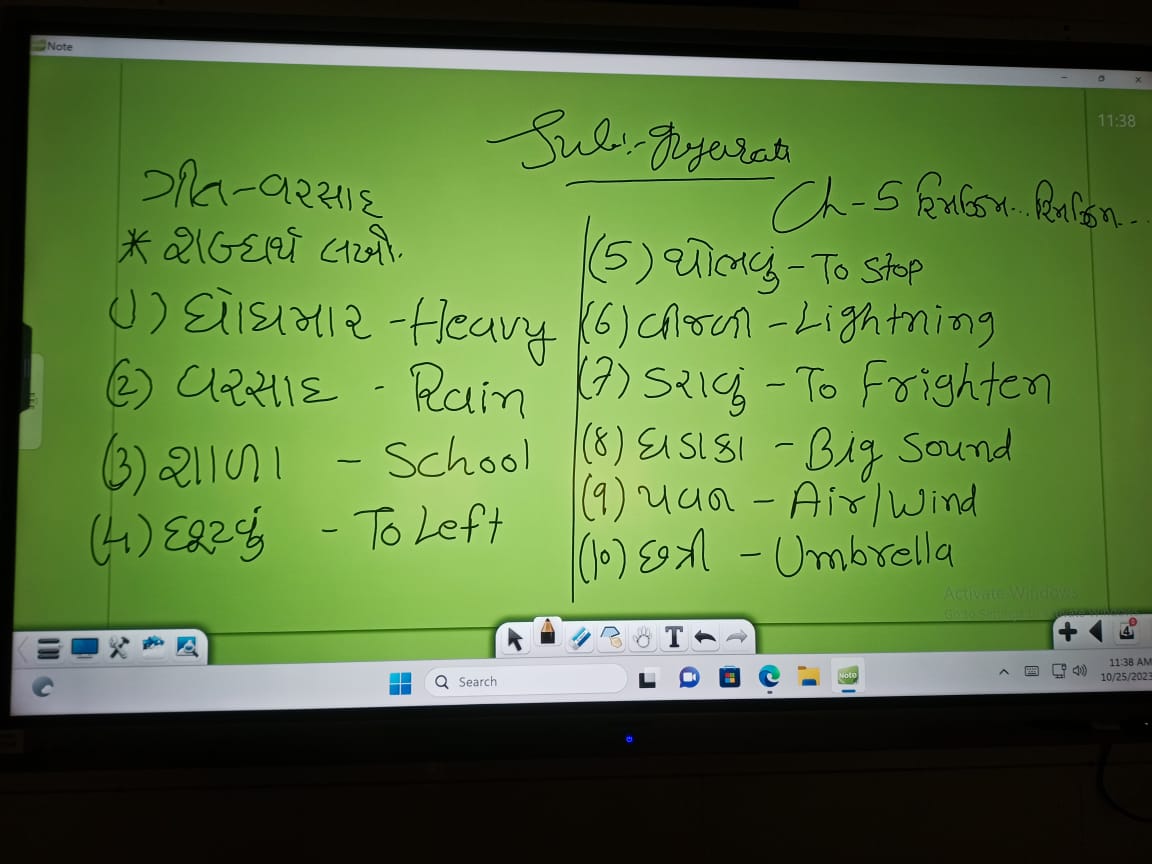 Note
11:38
Sub:- Gujarati
Ch-5 રિમઝિમ... રિમઝિમ...
ગીત-વરસાદ
* શબ્દાર્થ લખો.
(૧) ધોધમાર - Heavy
(૨) વરસાદ - Rain
(૩) શાળા - School
(૪) છૂટવું - To Left
(5) થોભવું - To Stop
(6) વીજળી - Lightning
(7) ડરાવું - To Frighten
(8) ધડાકા - Big Sound
(9) પવન - Air/Wind
(૧૦) છત્રી - Umbrella
Activate Windows
T
4
Search
Note
11:38 AM
10/25/2023